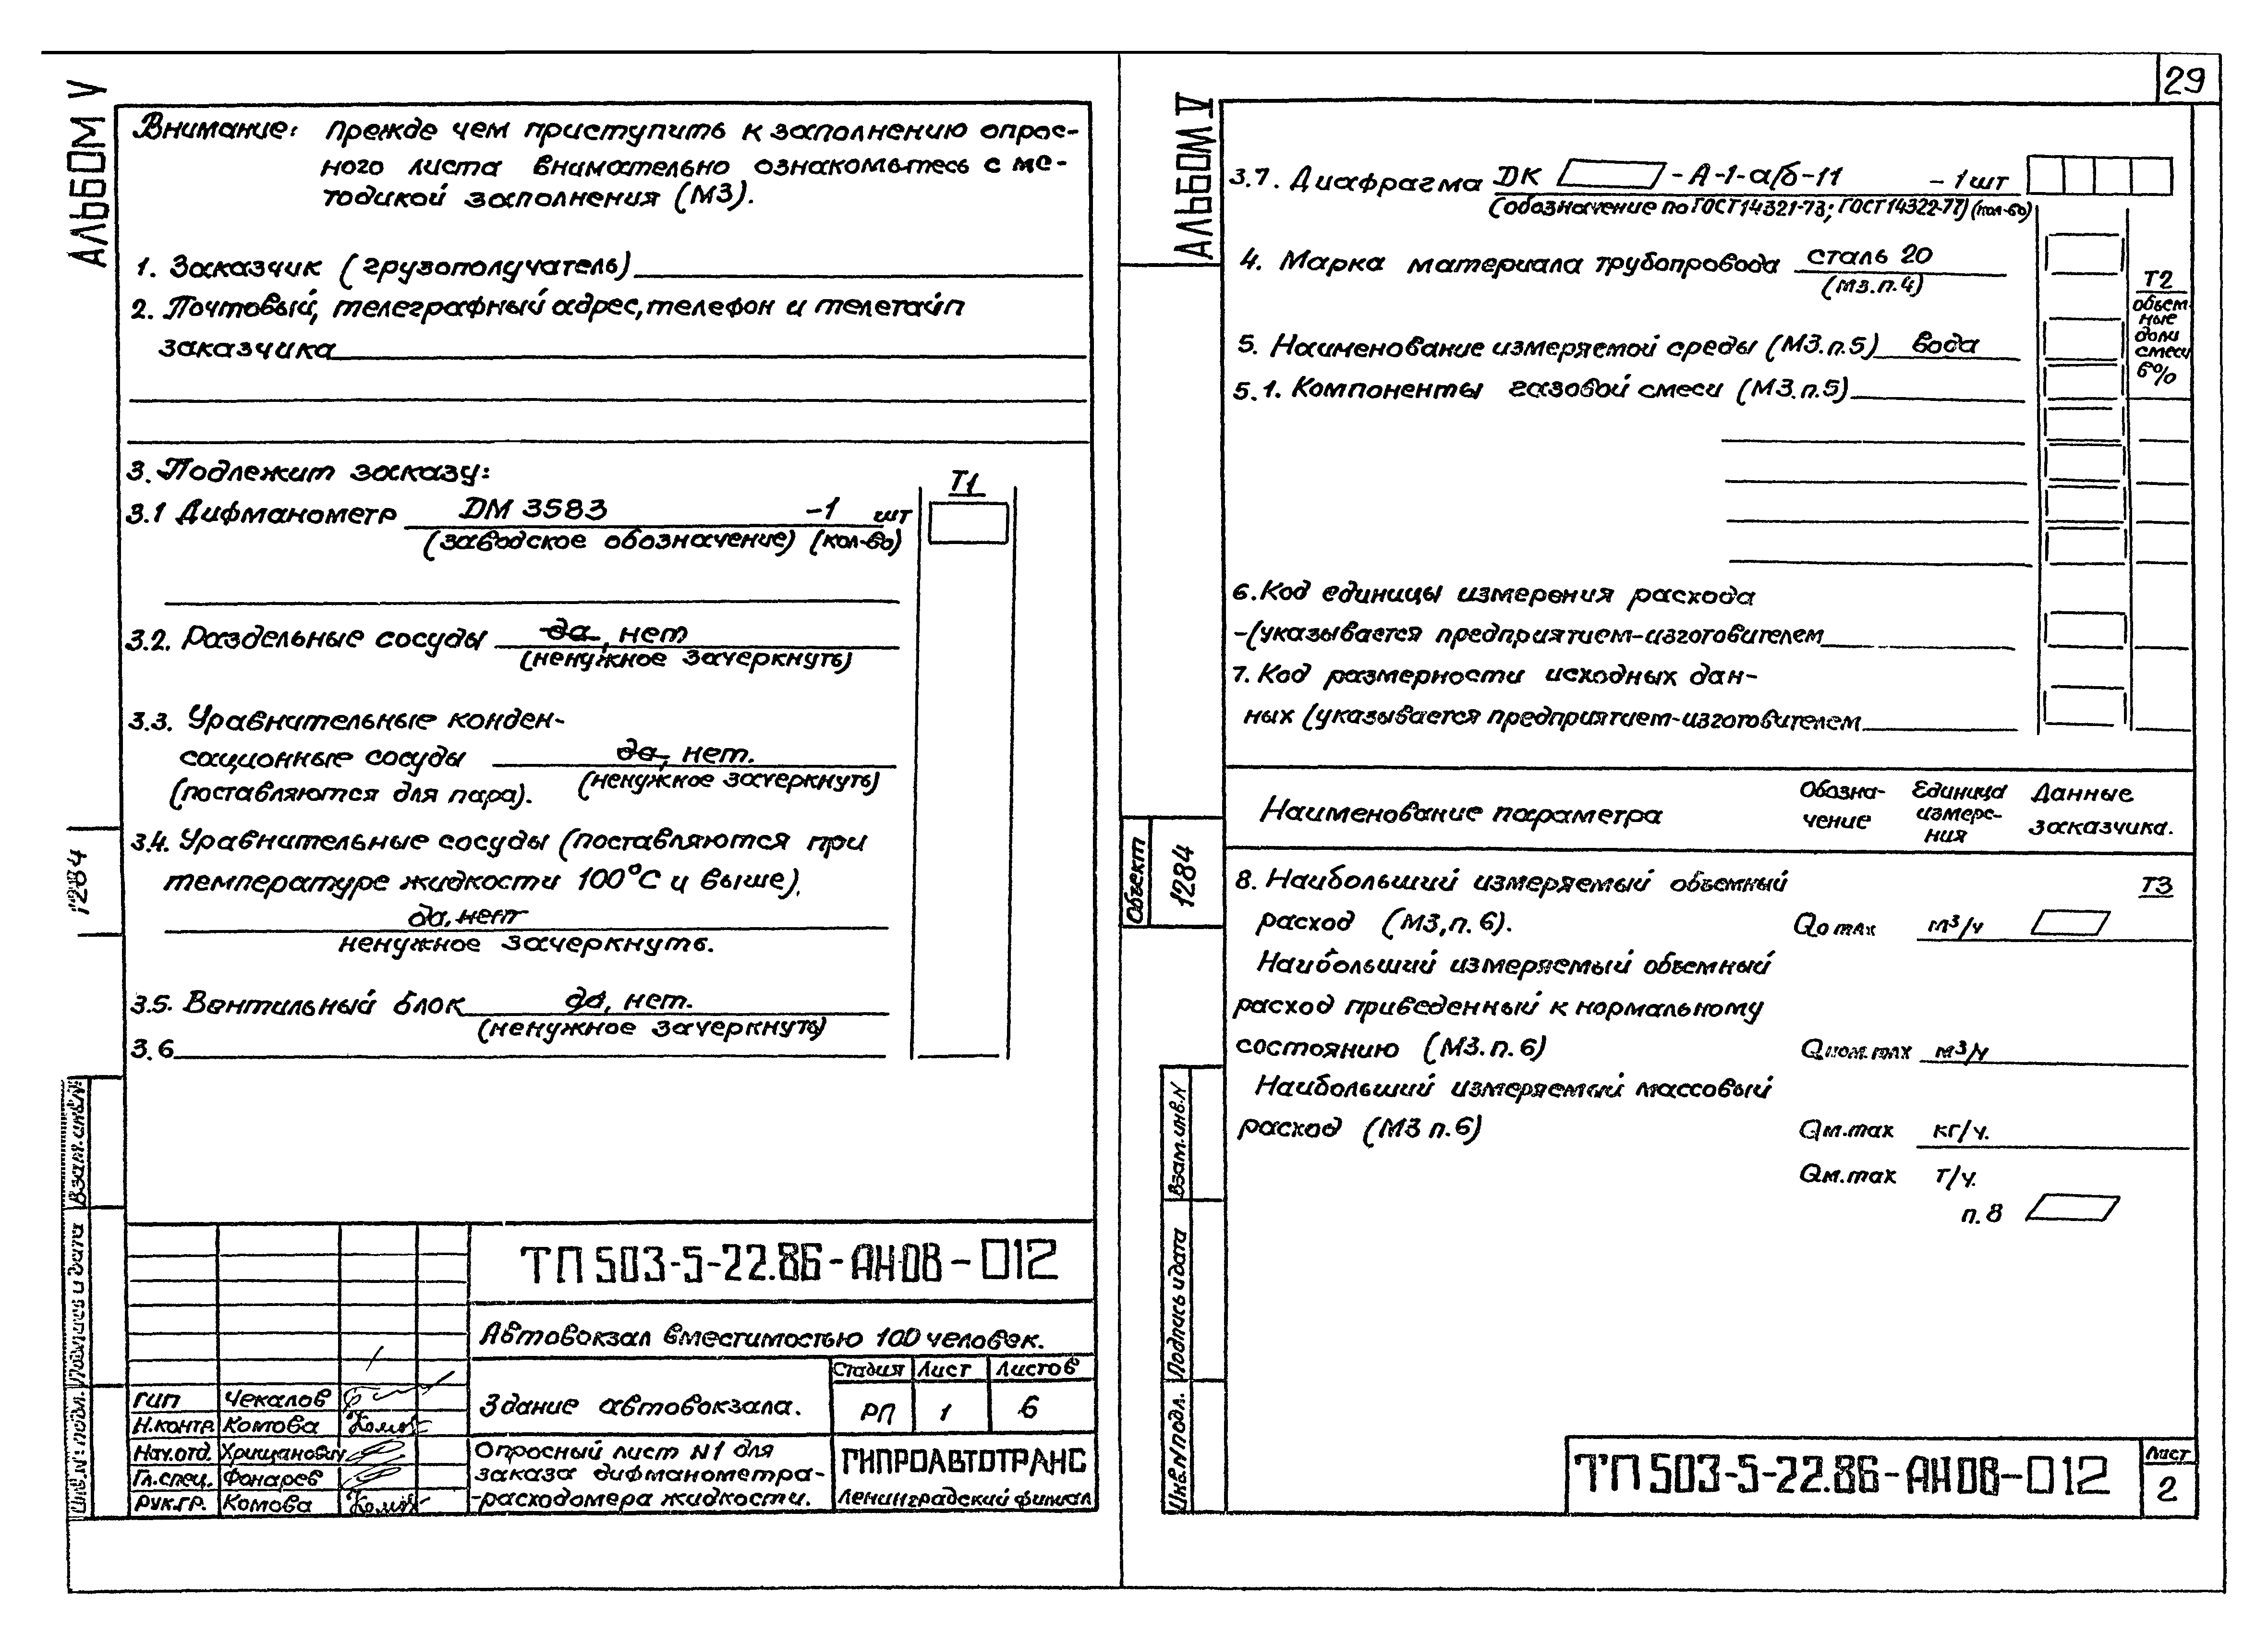 29
АЛЬБОМ V
Внимание: прежде чем приступить к заполнению опрос-
ного листа внимательно ознакомьтесь с ме-
тодикой заполнения (МЗ).
1. Заказчик (грузополучатель)
2. Почтовый, телеграфный адрес, телефон и телетайп
заказчика
3. Подлежит заказу:
Т1
3.1 Дифманометр DM 3583 -1 шт
(заводское обозначение) (кол-во)
3.2. Раздельные сосуды да, нет
(ненужное зачеркнуть)
3.3. Уравнительные конден-
сационные сосуды да, нет.
(поставляются для пара). (ненужное зачеркнуть)
3.4. Уравнительные сосуды (поставляются при
температуре жидкости 100°С и выше),
да, нет
ненужное зачеркнуть.
3.5. Вентильный блок да, нет.
(ненужное зачеркнуть)
3.6
1284
Взам.инв.N
Подпись и дата
Инв.N подл.
ТП 503-5-22.86-АНОВ-012
Автовокзал вместимостью 100 человек.
Здание автовокзала.
Стадия Лист Листов
РП 1 6
ГИП Чекалов
Н.контр. Комова
Нач.отд. Хрищанович
Гл.спец. Фонарев
Рук.гр. Комова
Опросный лист N1 для
заказа дифманометра-
-расходомера жидкости.
ГИПРОАВТОТРАНС
Ленинградский филиал
АЛЬБОМ IV
3.7. Диафрагма DK -А-1-а/б-11 -1шт
(обозначение по ГОСТ 14321-73; ГОСТ 14322-77) (кол-во)
4. Марка материала трубопровода сталь 20
(МЗ.п.4)
Т2
объем-
ные
доли
смеси
в%
5. Наименование измеряемой среды (МЗ.п.5) вода
5.1. Компоненты газовой смеси (МЗ.п.5)
6. Код единицы измерения расхода
-(указывается предприятием-изготовителем
7. Код размерности исходных дан-
ных (указывается предприятием-изготовителем
Наименование параметра
Обозна-
чение
Единица
измере-
ния
Данные
заказчика.
8. Наибольший измеряемый объемный
Т3
расход (МЗ,п.6). Qo max м³/ч
Наибольший измеряемый объемный
расход приведенный к нормальному
состоянию (МЗ.п.6) Qном.max м³/ч
Наибольший измеряемый массовый
расход (МЗ п.6) Qм.max кг/ч.
Qм.max т/ч.
п.8
Объект
1284
Взам.инв.N
Подпись и дата
Инв.N подл.
ТП 503-5-22.86-АНОВ-012
Лист
2